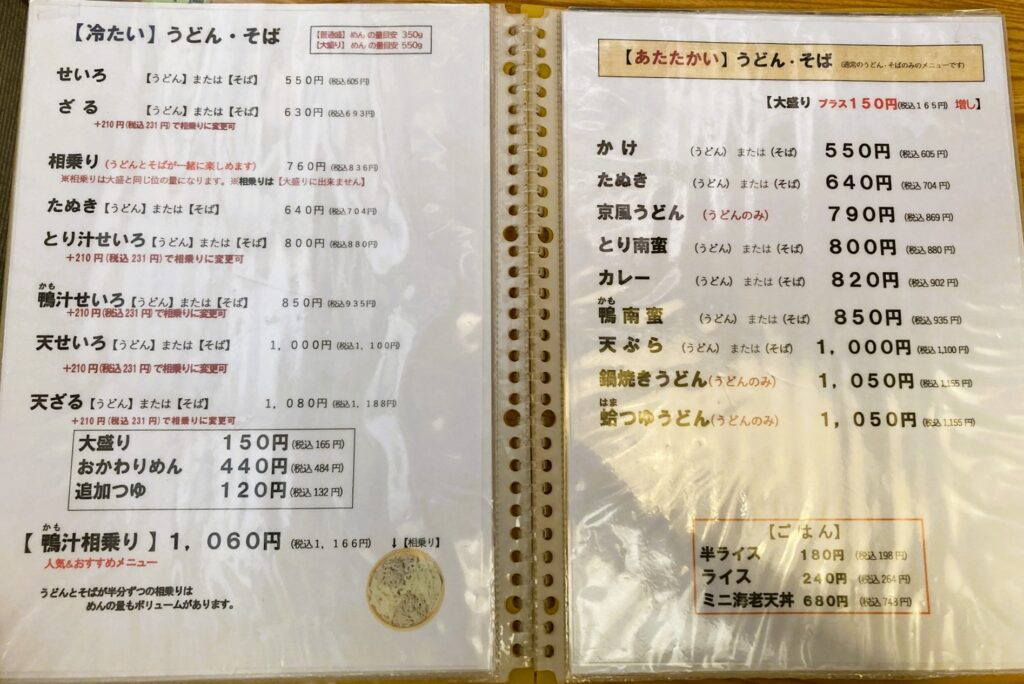 【冷たい】うどん・そば
【普通盛】めんの量目安 350g
【大盛り】めんの量目安 550g
せいろ 【うどん】または【そば】 550円(税込605円)
ざる 【うどん】または【そば】 630円(税込693円)
+210円(税込231円)で相乗りに変更可
相乗り(うどんとそばが一緒に楽しめます) 760円(税込836円)
※相乗りは大盛と同じ位の量になります。※相乗りは【大盛りに出来ません】
たぬき【うどん】または【そば】 640円(税込704円)
とり汁せいろ【うどん】または【そば】 800円(税込880円)
+210円(税込231円)で相乗りに変更可
かも
鴨汁せいろ【うどん】または【そば】 850円(税込935円)
+210円(税込231円)で相乗りに変更可
天せいろ【うどん】または【そば】 1,000円(税込1,100円)
+210円(税込231円)で相乗りに変更可
天ざる【うどん】または【そば】 1,080円(税込1,188円)
+210円(税込231円)で相乗りに変更可
大盛り 150円(税込165円)
おかわりめん 440円(税込484円)
追加つゆ 120円(税込132円)
かも
【鴨汁相乗り】1,060円(税込1,166円) ↓【相乗り】
人気&おすすめメニュー
うどんとそばが半分ずつの相乗りは
めんの量もボリュームがあります。
【あたたかい】うどん・そば(通常のうどん・そばのみのメニューです)
【大盛り プラス150円(税込165円) 増し】
かけ (うどん) または (そば) 550円(税込605円)
たぬき (うどん) または (そば) 640円(税込704円)
京風うどん (うどんのみ) 790円(税込869円)
とり南蛮 (うどん) または (そば) 800円(税込880円)
カレー (うどん) または (そば) 820円(税込902円)
かも
鴨南蛮 (うどん) または (そば) 850円(税込935円)
天ぷら (うどん) または (そば) 1,000円(税込1,100円)
鍋焼きうどん(うどんのみ) 1,050円(税込1,155円)
はま
蛤つゆうどん(うどんのみ) 1,050円(税込1,155円)
【ごはん】
半ライス 180円(税込198円)
ライス 240円(税込264円)
ミニ海老天丼 680円(税込748円)